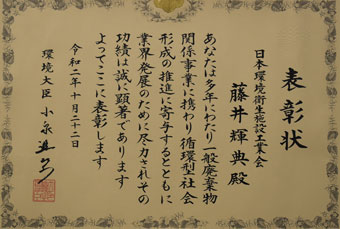 表彰状
日本環境衛生施設工業会
藤井輝典殿
あなたは多年にわたり一般廃棄物
関係事業に携わり循環型社会
形成の推進に寄与するとともに
業界発展のために尽力されその
功績は誠に顕著であります
よってここに表彰します
令和二年十月二十二日
環境大臣 小泉進次郎